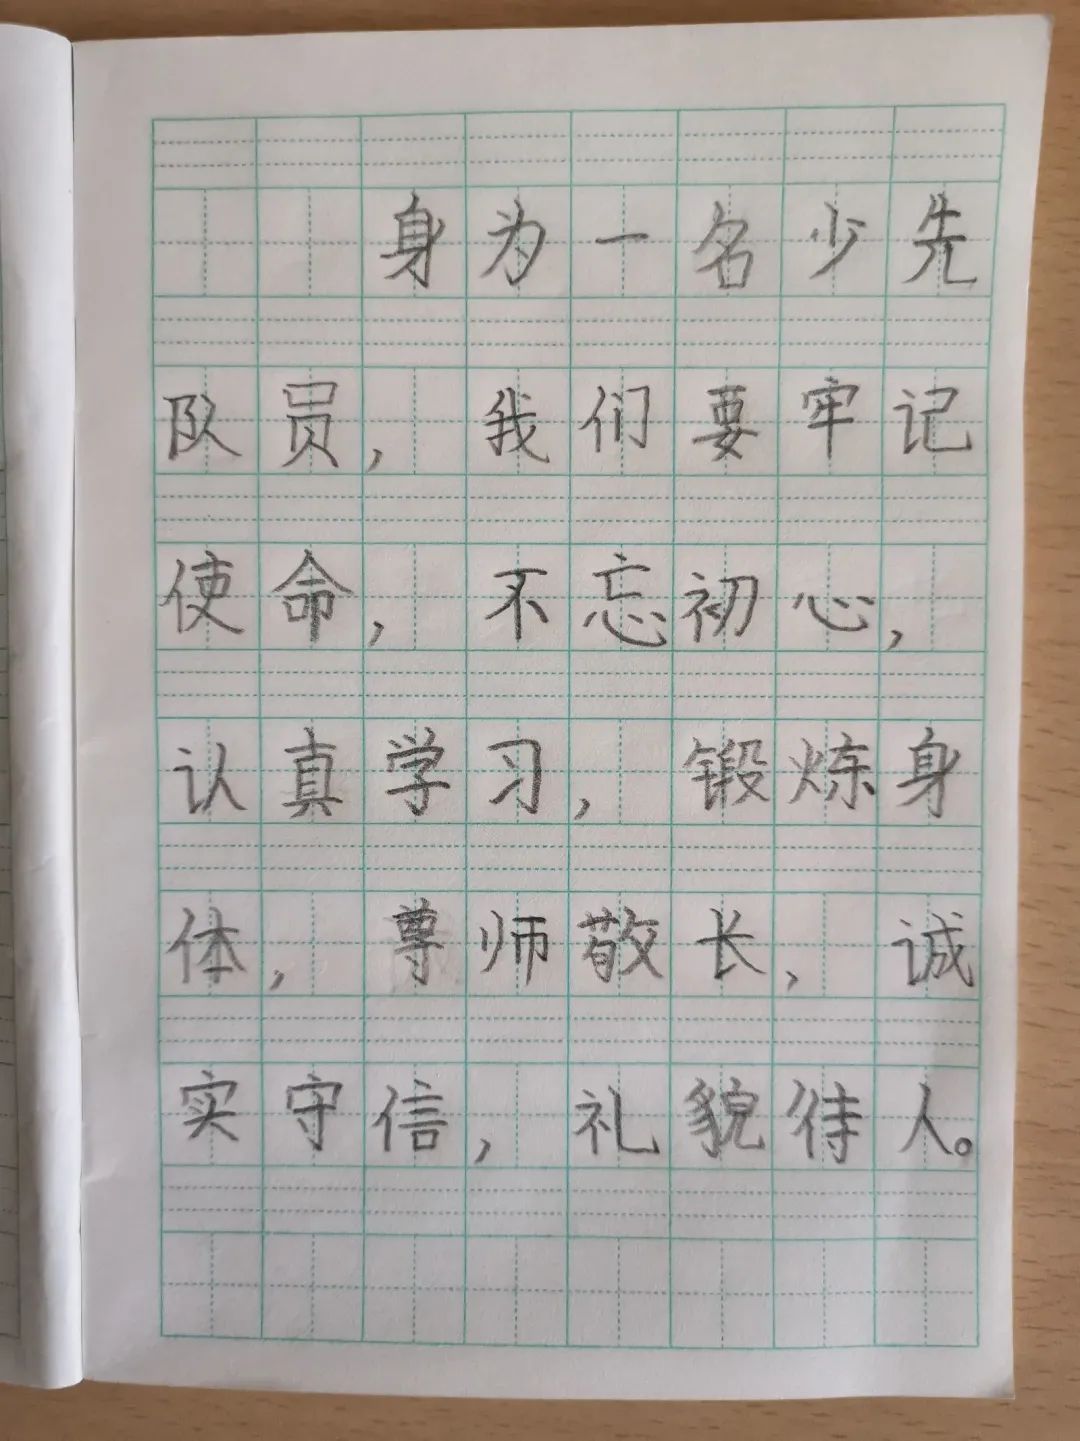 身为一名少先
队员，我们要牢记
使命，不忘初心，
认真学习，锻炼身
体，尊师敬长，诚
实守信，礼貌待人。